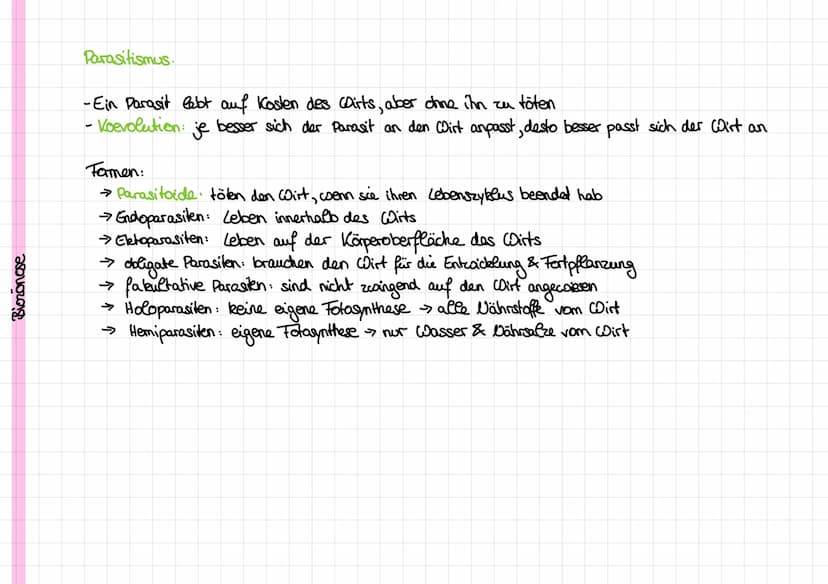 Parasitismus.
- Ein Parasit lebt auf Kosten des Wirts, aber ohne ihn zu töten
- Koevolution: je besser sich der Parasit an den Wirt anpasst, desto besser passt sich der Wirt an
Formen:
→ Parasitoide: töten den Wirt, wenn sie ihren Lebenszyklus beendet hab
→ Endoparasiten: Leben innerhalb des Wirts
→ Ektoparasiten: Leben auf der Körperoberfläche des Wirts
→ obligate Parasiten: brauchen den Wirt für die Entwicklung & Fortpflanzung
→ fakultative Parasiten: sind nicht zwingend auf den Wirt angewiesen
→ Holoparasiten: keine eigene Fotosynthese → alle Nährstoffe vom Wirt
→ Hemiparasiten: eigene Fotosynthese → nur Wasser & Nährsalze vom Wirt